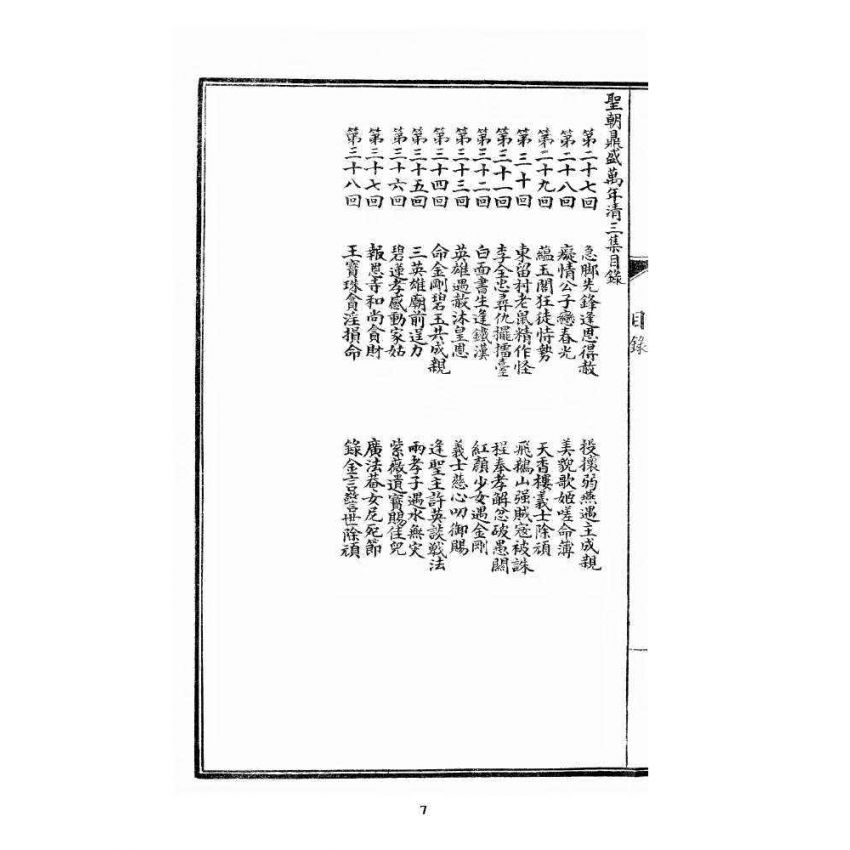 聖朝鼎盛萬年清三集目錄
第二十七回 急脚先鋒逢恩得赦 投懷弱燕遇主成親
第二十八回 癡情公子戀春光 美貌歌姬嗟命薄
第二十九回 蘊玉閣狂徒恃勢 天香樓義士除頑
第三十回 東留村老鼠精作怪 飛鵝山强賊寇被誅
第三十一回 李全忠尋仇擺擂臺 程奉孝解忿破愚關
第三十二回 白面書生逢鐵漢 紅顏少女遇金剛
第三十三回 英雄遇赦沐皇恩 義士慈心叨御賜
第三十四回 命金剛碧玉共成親 逢聖主許英談戰法
第三十五回 三英雄廟前逞力 兩孝子遇水無災
第三十六回 碧蓮孝感動家姑 紫薇遺寶賜佳兒
第三十七回 報恩寺和尚貪財 廣法菴女尼死節
第三十八回 王寶珠貪淫損命 錄金言警世除頑
目錄
7